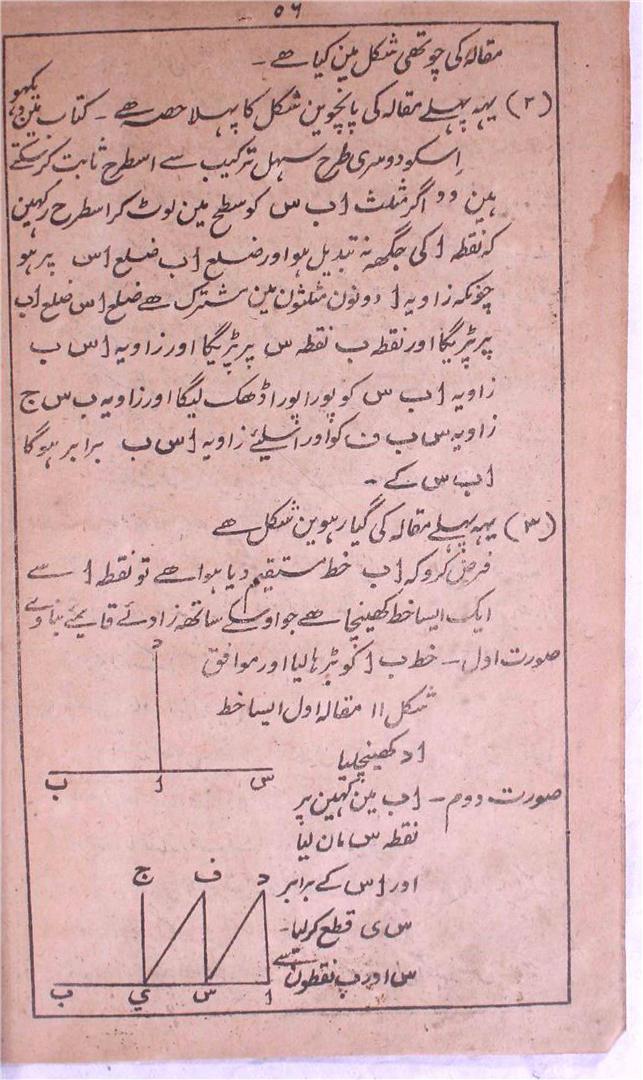 ۵۶
مقالہ کی چوتھی شکل مین کیا ھے ۔
(۲) یہہ پہلے مقالہ کی پانچوین شکل کا پہلا حصہ ھے ۔ کتاب مین دیکھو
اِسکو دوسری طرح سہل ترکیب سے اسطرح ثابت کر سکتے
ہین وو اگر مثلث ا ب س کو سطح مین لوٹ کر اسطرح رکہین
کہ نقطہ ا کی جگھہ نہ تبدیل ہو اور ضلع ا ب ضلع ا س پر ہو
چونکہ زاویہ ا دونون مثلثون مین مشترک ھے ضلع ا س ضلع ا ب
پر پڑیگا اور نقطہ ب نقطہ س پر پڑیگا اور زاویہ ا س ب
زاویہ ا ب س کو پورا پورا ڈھک لیگا اور زاویہ ب س ج
زاویہ س ب ف کو اور اسلیئے زاویہ ا س ب برابر ہوگا
ا ب س کے ۔
(۳) یہہ پہلے مقالہ کی گیارہوین شکل ھے
فرض کرو کہ ا ب خط مستقیم دیا ہوا ھے تو نقطہ ا سے
ایک ایسا خط کھینچا ھے جو اوسکے ساتھہ زاوئے قایمے بناوے
صورت اول ۔ خط ب ا کو بڑہا لیا اور موافق
شکل ۱۱ مقالہ اول ایسا خط
ا د کھینچ لیا
د
ب ا س
صورت دوم ۔ ا ب مین کہین پر
نقطہ س مان لیا
اور ا س کے برابر
س ی قطع کر لیا ۔
س اور ی نقطون سے
ج ف د
ب ي س ا